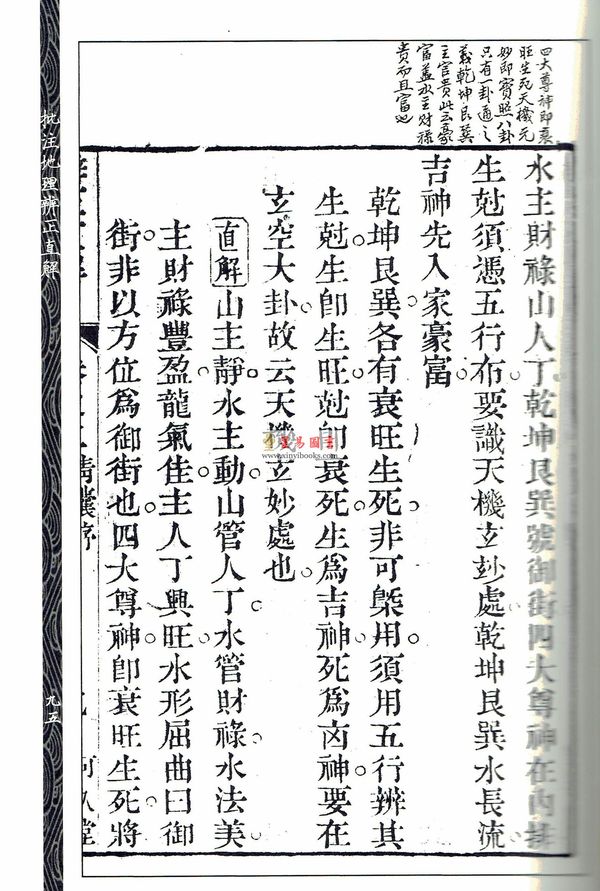 四大尊神即衰
旺生死天機元
妙即寶照八卦
只有一卦通之
義乾坤艮巽
主官貴此云豪
富蓋水主財祿
貴而且富也
水主財祿山人丁乾坤艮巽號御街四大尊神在內排
生尅須憑五行布要識天機玄妙處乾坤艮巽水長流
吉神先入家豪富
乾坤艮巽各有衰旺生死非可槩用須用五行辨其
生尅生卽生旺尅卽衰死生爲吉神死爲㐫神要在
玄空大卦故云天機玄妙處也
直解 山主靜水主動山管人丁水管財祿水法美
主財祿豐盈龍氣佳主人丁興旺水形屈曲曰御
街非以方位爲御街也四大尊神卽衰旺生死將
青囊序
批注地理辨正直解
九五
星易圖書
www.xinyibooks.com